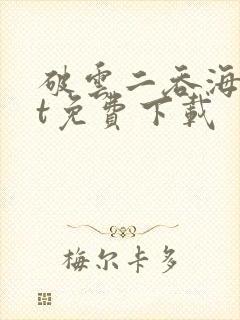 破雲二吞海
t免費下載
梅尔卡多